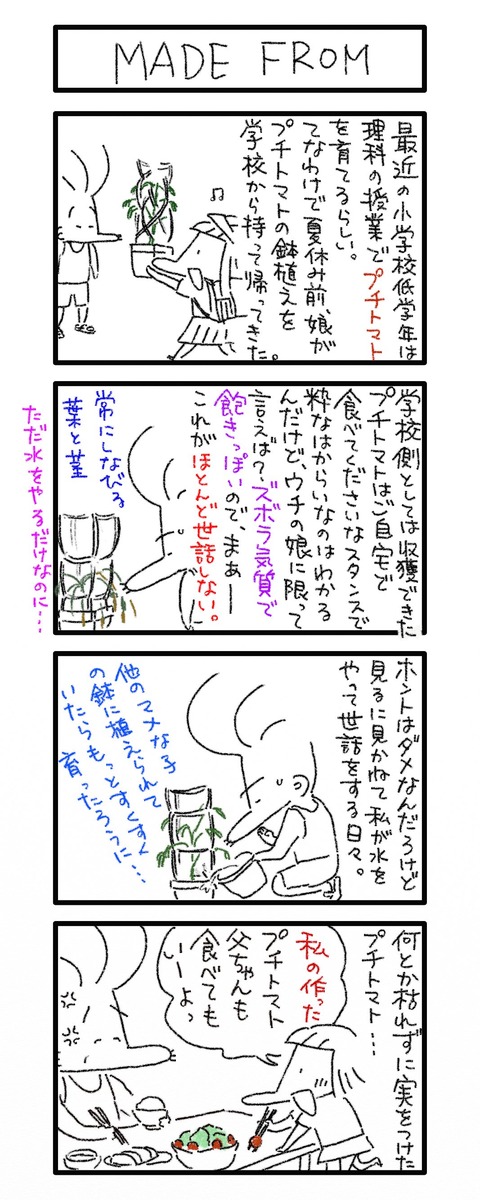 MADE FROM
最近の小学校低学年は
理科の授業でプチトマト
を育てるらしい。
てなわけで夏休み前、娘が
プチトマトの鉢植えを
学校から持って帰ってきた。
♫
学校側としては収獲できた
プチトマトはご自宅で
食べてくださいなスタンスで
粋なはからいなのはわかる
んだけど、ウチの娘に限って
言えば?、ズボラ気質で
飽きっぽいので、まぁー
これがほとんど世話しない。
常にしなびる
葉と茎
ただ水をやるだけなのに…
ホントはダメなんだろけど
見るに見かねて私が水を
やって世話をする日々。
他のマメな子
の鉢に植えられて
いたらもっとすくすく
育ったろうに…
何とか枯れずに実をつけた
プチトマト…
私の作った
プチトマト
父ちゃんも
食べても
いーよっ